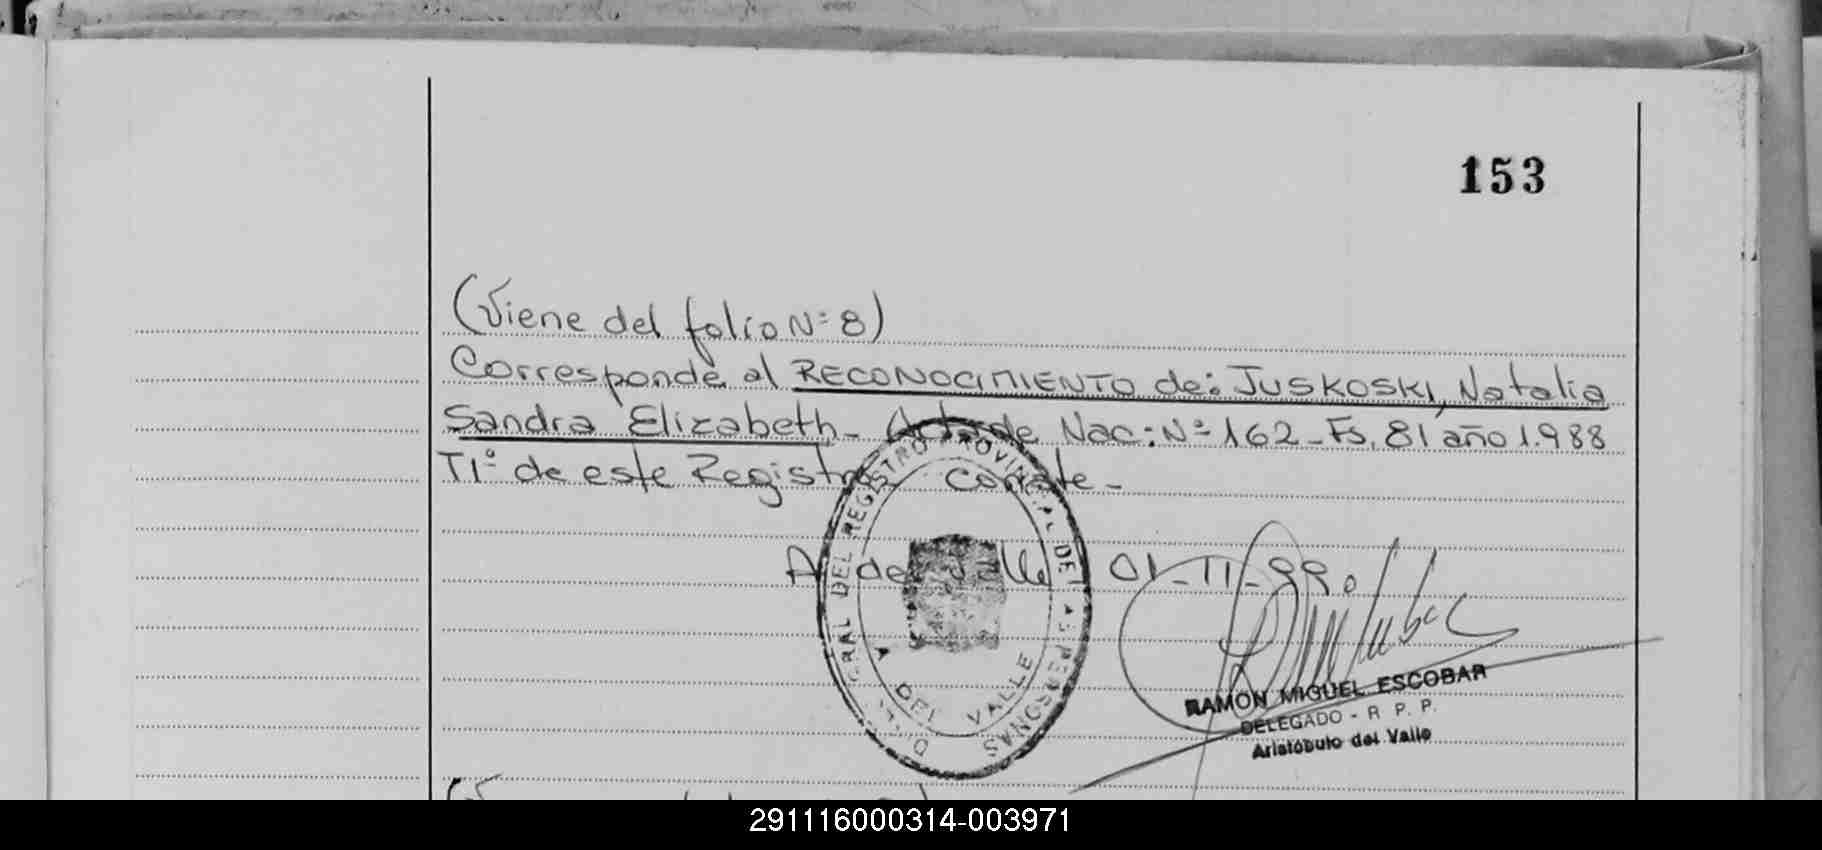 153
(Viene del folio Nº 8)
Corresponde al RECONOCIMIENTO de: JUSKOSKI, Natalia
Sandra Elizabeth - Acta de Nac: Nº 162 - Fs. 81 año 1.988
T1º de este Registro Conste -
A. del Valle 01 - 11 - 99.
DEL REGISTRO PROVINCIAL DE LAS PERSONAS
A DEL VALLE
RAMON MIGUEL ESCOBAR
DELEGADO - R. P. P.
Aristóbulo del Valle
291116000314-003971